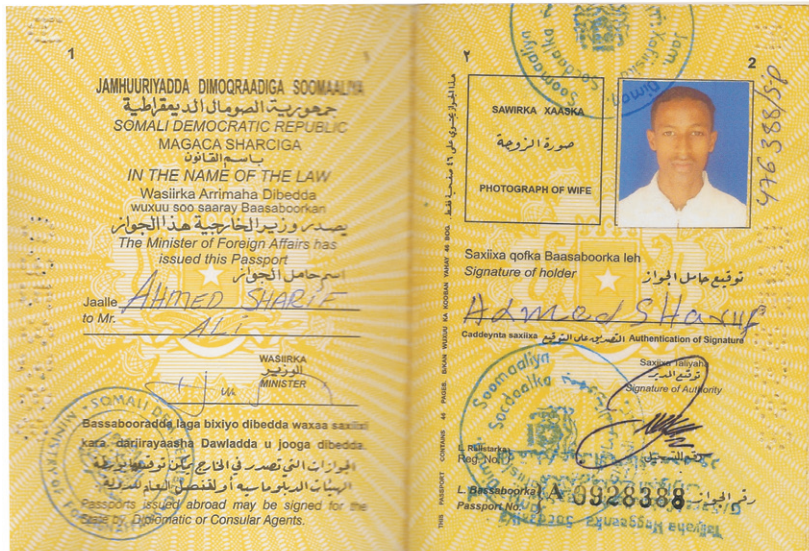 1
JAMHUURIYADDA DIMOQRAADIGA SOOMAALIYA
جمهورية الصومال الديمقراطية
SOMALI DEMOCRATIC REPUBLIC
MAGACA SHARCIGA
باسم القانون
IN THE NAME OF THE LAW
Wasiirka Arrimaha Dibedda
wuxuu soo saaray Baasaboorkan
يصدر وزير الخارجية هذا الجواز
The Minister of Foreign Affairs has
issued this Passport
اسم حامل الجواز
Jaalle AHMED SHARIF
to Mr.
ALI
WASIIRKA
الوزير
MINISTER
Bassabooradda laga bixiyo dibedda waxaa saxiixi
kara dariirayaasha Dawladda u jooga dibedda.
الجوازات التى تصدر في الخارج يمكن توقيعها بواسطة
Passports issued abroad may be signed for the
State by Diplomatic or Consular Agents.
٢
2
SAWIRKA XAASKA
صورة الزوجة
PHOTOGRAPH OF WIFE
هذا الجواز يحتوي على ٤٦ صفحة فقط
Saxiixa qofka Baasaboorka leh
Signature of holder
توقيع حامل الجواز
Ahmed SHarif
Caddeynta saxiixa التصديق على التوقيع Authentication of Signature
Saxiixa Taliyaha
توقيع المدير
Signature of Authority
Reg. No.
L. Bassaboorka
Passport No. A 0928388 رقم الجواز
THIS PASSPORT CONTAINS 46 PAGES.